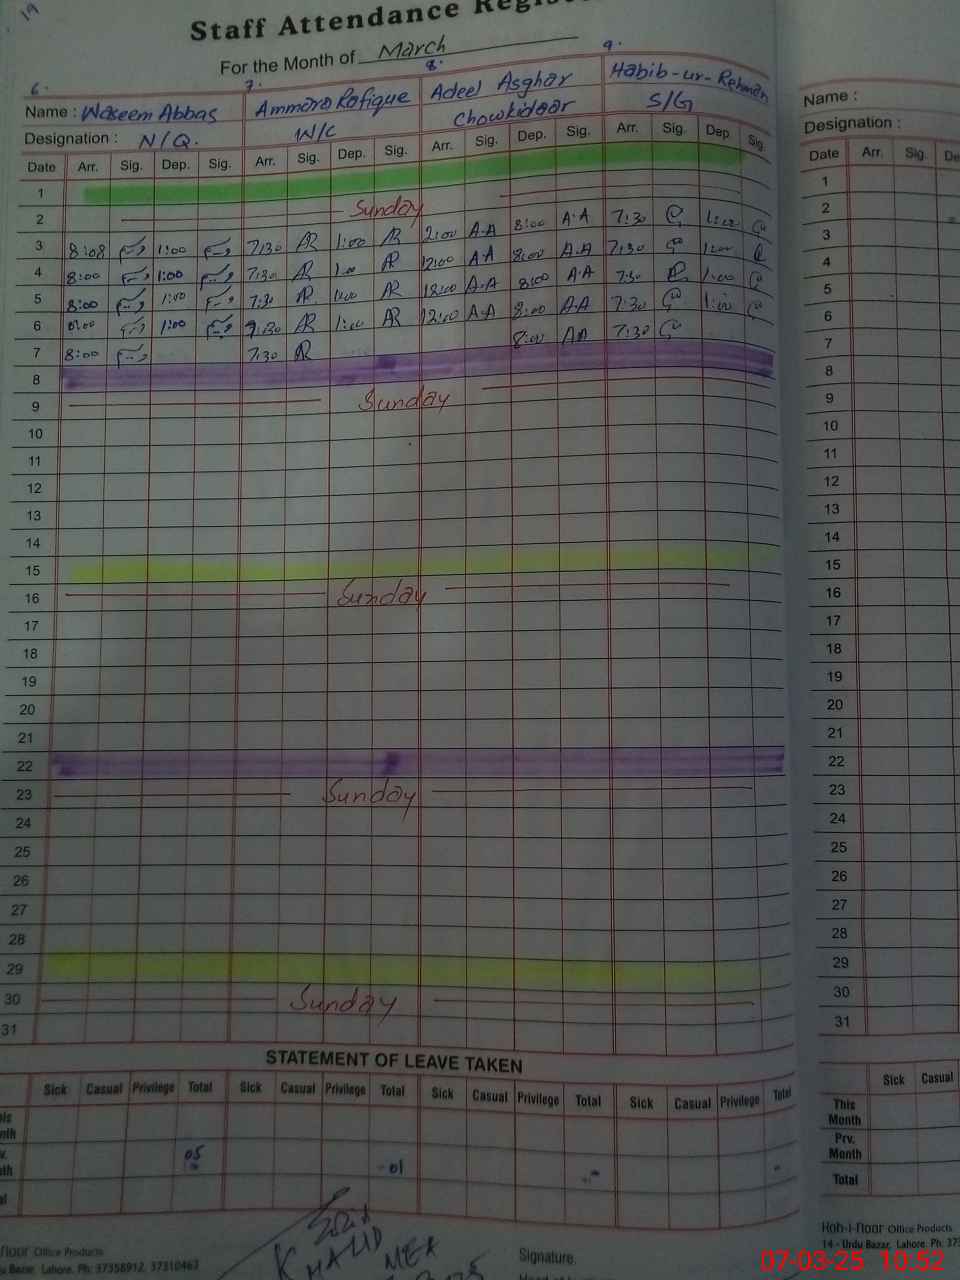 19
Staff Attendance Regis
For the Month of March
6. 7. 8. 9.
Name : Waseem Abbas Ammara Rafique Adeel Asghar Habib-ur-Rehman
Designation : N/Q. W/C Chowkidaar S/G
Date Arr. Sig. Dep. Sig. Arr. Sig. Dep. Sig. Arr. Sig. Dep. Sig. Arr. Sig. Dep Sig.
1
2 Sunday
3 8:08 1:00 7:30 AR 1:00 AR 2:00 A.A 8:00 A.A 7:30 1:00
4 8:00 1:00 7:30 AR 1:00 AR 12:00 A A 8:00 A.A 7:30 1:00
5 8:00 1:00 7:30 AR 1:00 AR 12:00 A.A 8:00 A.A 7:30 1:00
6 8:00 1:00 7:30 AR 1:00 AR 12:00 A.A 8:00 A.A 7:30 1:00
7 8:00 7:30 AR 8:00 AA 7:30
8
9 Sunday
10
11
12
13
14
15
16 Sunday
17
18
19
20
21
22
23 Sunday
24
25
26
27
28
29
30 Sunday
31
STATEMENT OF LEAVE TAKEN
Sick Casual Privilege Total Sick Casual Privilege Total Sick Casual Privilege Total Sick Casual Privilege Total
05 01
KHALID
MEA
noor Office Products
Bazar, Lahore. Ph: 37358912, 37310467
Signature.
Name :
Designation :
Date Arr. Sig. De
1
2
3
4
5
6
7
8
9
10
11
12
13
14
15
16
17
18
19
20
21
22
23
24
25
26
27
28
29
30
31
Sick Casual
This
Month
Prv.
Month
Total
Hoh-i-noor Office Products
14 - Urdu Bazar, Lahore. Ph: 37
07-03-25 10:52